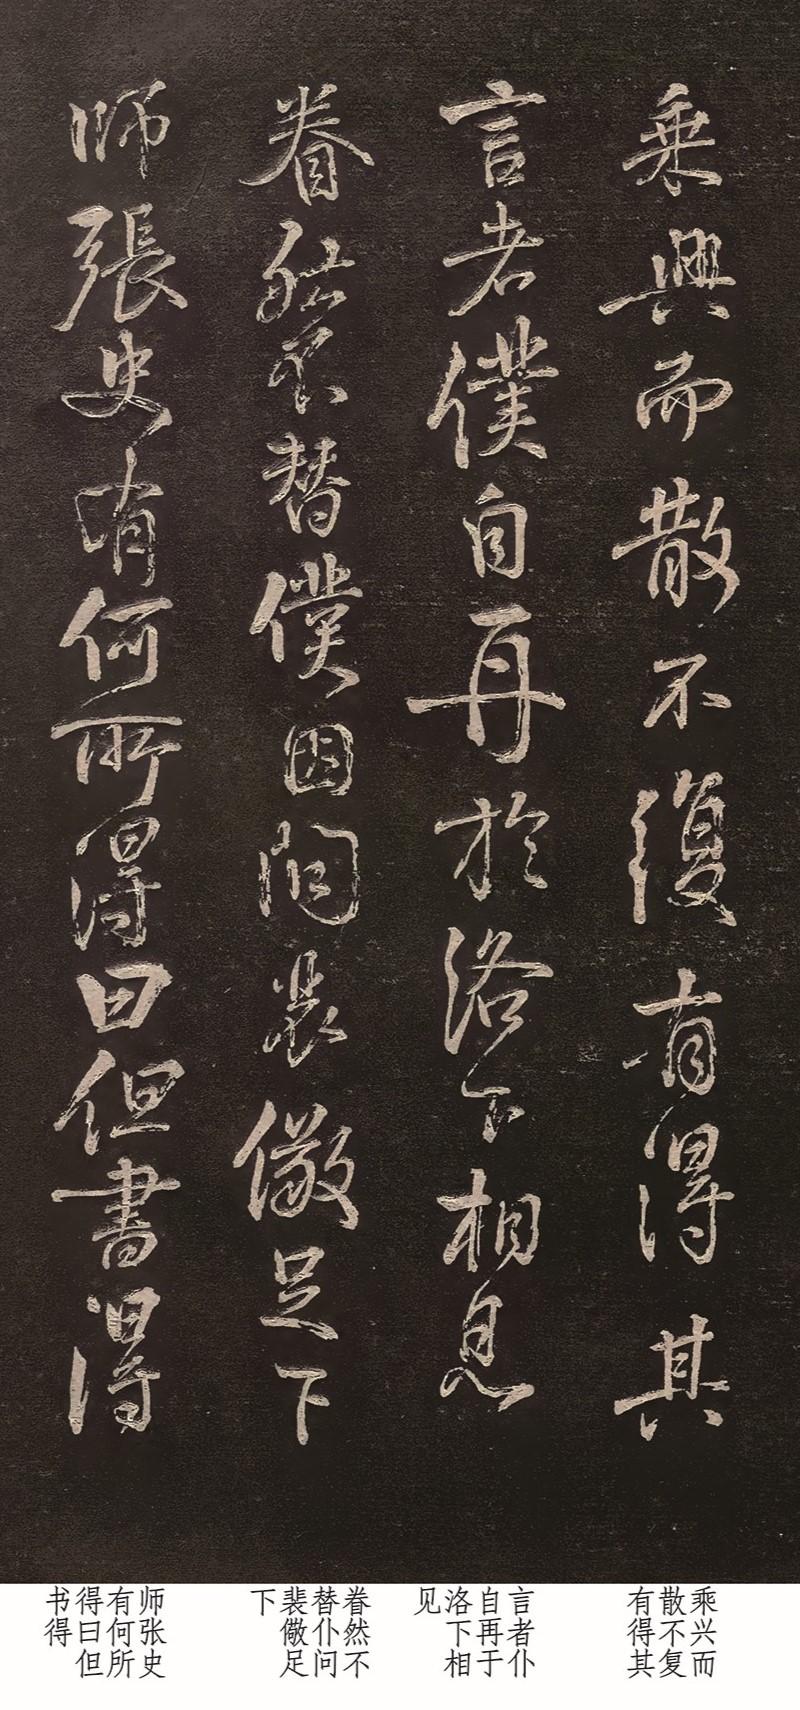 乘興而散不復有得其
言者僕自再於洛下相見
眷然不替僕因問裴儆足下
師張史有何所得曰但書得
乘兴而
散不复
有得其
言者仆
自再于
洛下相
见
眷然不
替仆问
裴儆足
下
师张史
有何所
得曰但
书得